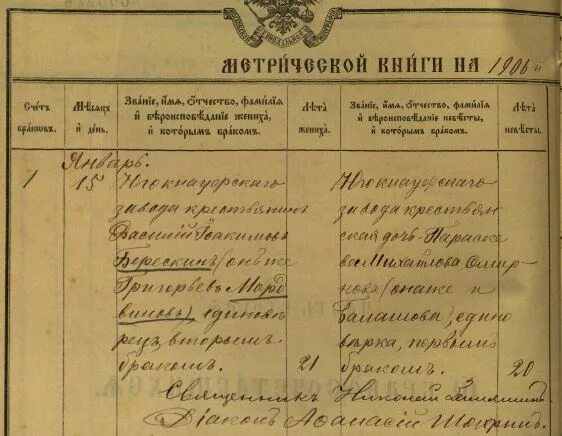 МЕТРИЧЕСКОЙ КНИГИ НА 1906 й
Счетъ браковъ.
Мѣсяцъ и день.
Званіе, имя, отчество, фамилія и вѣроисповѣданіе жениха, и которымъ бракомъ.
Лѣта жениха.
Званіе, имя, отчество, фамилія и вѣроисповѣданіе невѣсты, и которымъ бракомъ.
Лѣта невѣсты.
Январь.
1
15
Югокнауфскаго
завода крестьянинъ
Василій Іоакимовъ
Берескинъ (онъ же
Григорьевъ Морд
виновъ), единовѣ
рецъ, вторымъ
бракомъ.
21
Югокнауфскаго
завода крестьян
ская дочь Параске
ва Михайлова Смир
нова (она же и
Балашова), едино
вѣрка, первымъ
бракомъ.
20
Священникъ Николай
Діаконъ Аѳанасій